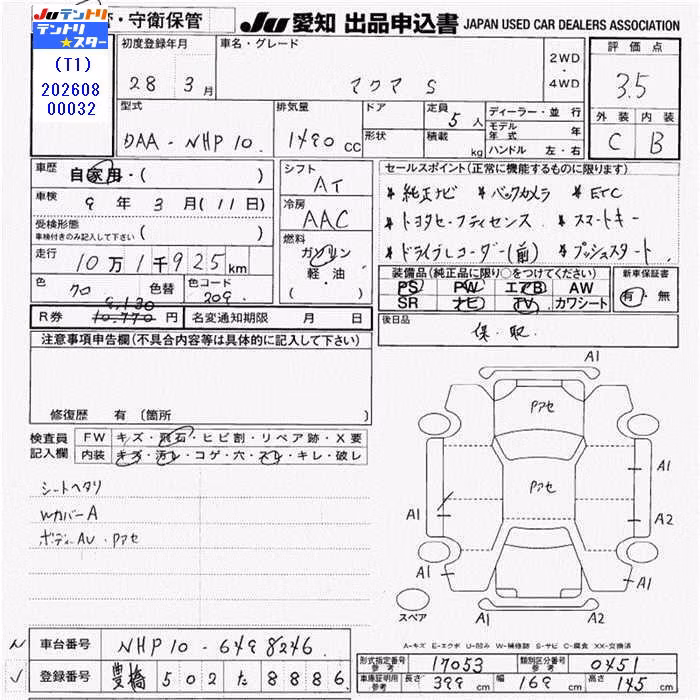 JUテントリ
テントリ★スター
(T1)
202608
00032
・守衛保管
JU 愛知 出品申込書 JAPAN USED CAR DEALERS ASSOCIATION
初度登録年月
28 3月
車名・グレード
アクア S
2WD
・
4WD
評価点
3.5
外装 内装
C B
型式
DAA-NHP10.
排気量
1490 CC
ドア
形状
定員 5人
積載 kg
ディーラー・並行
モデル年式 年
ハンドル 左・右
車歴
自家用・( )
車検 9年3月(11日)
受検形態
車検付きのみ記入して下さい ( )
走行 10万1千925km
色 クロ 色替 色コード 209.
シフト
AT
冷房
AAC
燃料
ガソリン
軽・油
( )
セールスポイント(正常に機能するものに限ります)
* 純正ナビ * バックカメラ * ETC
* トヨタセーフティセンス * スマートキー
* ドライブレコーダー(前) * プッシュスタート
装備品(純正品に限り○をつけてください)
PS PW エアB AW
SR ナビ TV カワシート
新車保証書
有・無
R券 9,130 10,770円 名変通知期限 月 日
後日品
保.取.
注意事項申告欄(不具合内容等は具体的に記入して下さい)
修復歴 有 〔箇所
検査員記入欄
FW キズ・飛石・ヒビ割・リペア跡・X要
内装 キズ・汚レ・コゲ・穴・スレ・キレ・破レ
シートヘタリ
WカバーA
ボディーAU・Pアセ
A1
Pアセ
Pアセ
A1
A1
A2
A1
A1
A2
スペア
A-キズ E-エクボ U-凹み W-補修跡 S-サビ C-腐食 XX-交換済
車台番号 NHP10-6498246
登録番号 豊橋 502 た 8886
形式指定番号 参考 17053 類別区分番号 参考 0451
車庫証明用 参考 長さ 399cm 幅 169cm 高さ 145cm